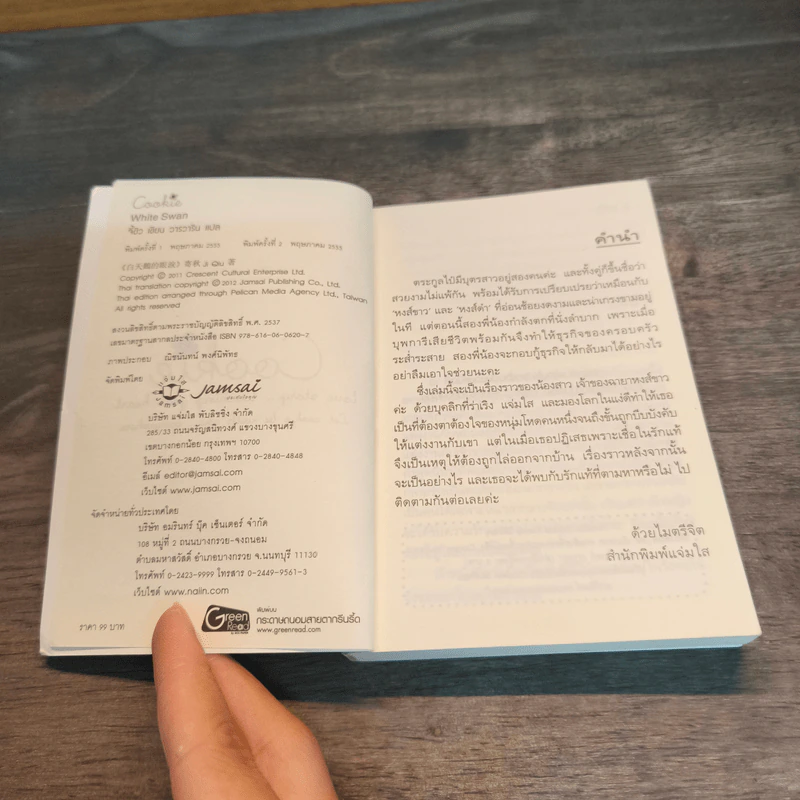 Cookie
White Swan
จิ้ว เขียน วารวาริน แปล
พิมพ์ครั้งที่ 1 พฤษภาคม 2555 พิมพ์ครั้งที่ 2 พฤษภาคม 2555
Copyright © 2011 Crescent Cultural Enterprise Ltd.
Thai translation copyright © 2012 Jamsai Publishing Co., Ltd.
Thai edition arranged through Pelican Media Agency Ltd., Taiwan
All rights reserved
สงวนลิขสิทธิ์ตามพระราชบัญญัติลิขสิทธิ์ พ.ศ. 2537
เลขมาตรฐานสากลประจำหนังสือ ISBN 978-616-06-0620-7
ภาพประกอบ ณิชนันทน์ พงศ์นีพัทธ
จัดพิมพ์โดย
แจ่มใส JAMSAI
jamsai
บริษัท แจ่มใส พับลิชชิ่ง จำกัด
285/33 ถนนจรัญสนิทวงศ์ แขวงบางขุนศรี
เขตบางกอกน้อย กรุงเทพฯ 10700
โทรศัพท์ 0-2840-4800 โทรสาร 0-2840-4848
อีเมล์ editor@jamsai.com
เว็บไซต์ www.jamsai.com
จัดจำหน่ายทั่วประเทศโดย
บริษัท อมรินทร์ บุ๊ค เซ็นเตอร์ จำกัด
108 หมู่ที่ 2 ถนนบางกรวย-จงถนอม
ตำบลมหาสวัสดิ์ อำเภอบางกรวย จ.นนทบุรี 11130
โทรศัพท์ 0-2423-9999 โทรสาร 0-2449-9561-3
เว็บไซต์ www.naiin.com
ราคา 99 บาท
Green Read
พิมพ์บน
กระดาษถนอมสายตากรีนรี้ด
www.greenread.com
คำนำ
ตระกูลไป๋มีบุตรสาวอยู่สองคนค่ะ และทั้งคู่ก็ขึ้นชื่อว่า
สวยงามไม่แพ้กัน พร้อมได้รับการเปรียบเปรยว่าเหมือนกับ
'หงส์ขาว' และ 'หงส์ดำ' ที่อ่อนช้อยงดงามและน่าเกรงขามอยู่
ในที แต่ตอนนี้สองพี่น้องกำลังตกที่นั่งลำบาก เพราะเมื่อ
บุพการีเสียชีวิตพร้อมกันจึงทำให้ธุรกิจของครอบครัว
ระส่ำระสาย สองพี่น้องจะกอบกู้ธุรกิจให้กลับมาได้อย่างไร
อย่าลืมเอาใจช่วยนะคะ
ซึ่งเล่มนี้จะเป็นเรื่องราวของน้องสาว เจ้าของฉายาหงส์ขาว
ค่ะ ด้วยบุคลิกที่ร่าเริง แจ่มใส และมองโลกในแง่ดีทำให้เธอ
เป็นที่ต้องตาต้องใจของหนุ่มโหดคนหนึ่งจนถึงขั้นถูกบีบบังคับ
ให้แต่งงานกับเขา แต่ในเมื่อเธอปฏิเสธเพราะเชื่อในรักแท้
จึงเป็นเหตุให้ต้องถูกไล่ออกจากบ้าน เรื่องราวหลังจากนั้น
จะเป็นอย่างไร และเธอจะได้พบกับรักแท้ที่ตามหาหรือไม่ ไป
ติดตามกันต่อเลยค่ะ
ด้วยไมตรีจิต
สำนักพิมพ์แจ่มใส